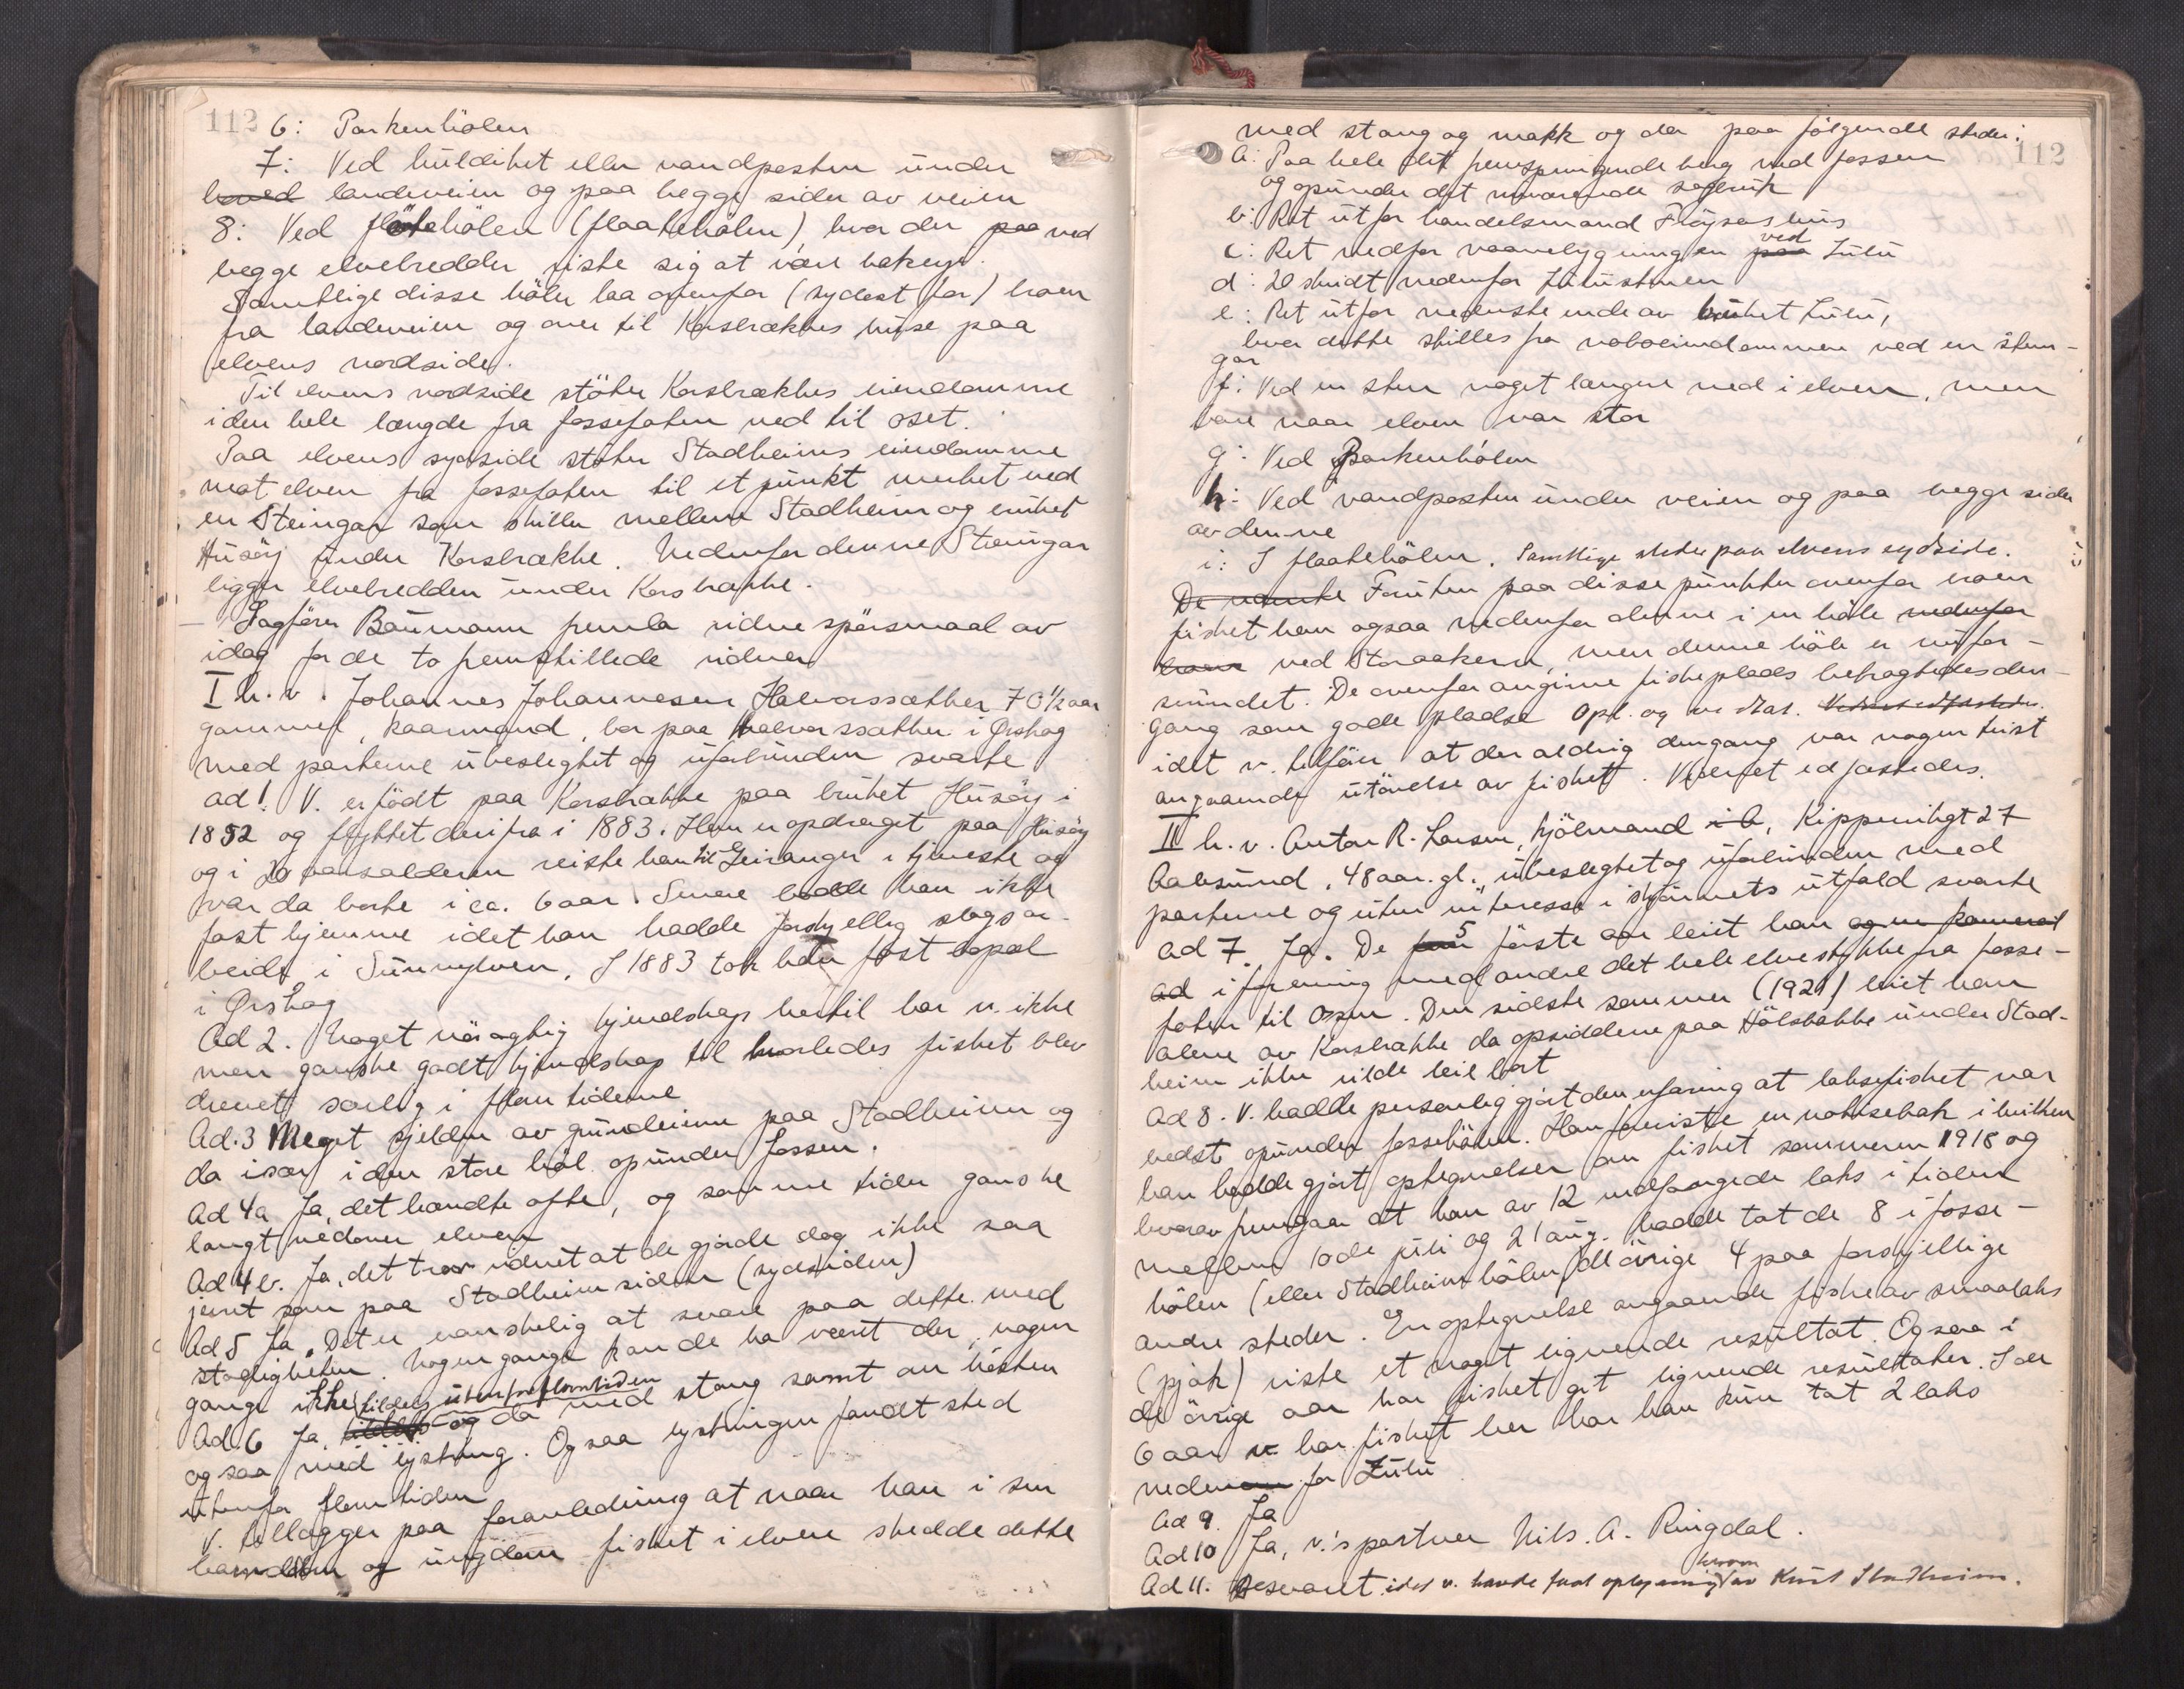 112
6: Parkenhölen
7: Ved huldihet eller vandposten under
landeveien og paa begge sider av veien
8: Ved flötehölen (flaatehölen) hvor der paa ved
begge elvebredder viste sig at være bakevje.
Samtlige disse höler laa ovenfor (sydost for) broen
fra landeveien og over til Korsbrækkes huse paa
elvens nordside.
Til elvens nordside stöter Korsbrækkes eiendomme
i den hele længde fra fossefoten ned til oset.
Paa elvens sydside stöter Stadheims eiendomme
mot elven fra fossefoten til et punkt merket ved
en Steingar som skiller mellem Stadheim og bruket
Husöy under Korsbrække. Nedenfor denne Steingar
ligger elvebredden under Korsbrække.
Sagförer Baumann fremla vidnespörsmaal av
idag for de to fremstillede vidner
I h.v. Johannes Johannesen Halvorssæther 70½ aar
gammel, kaarmand, bor paa Halvorssæther i Ørskog
med parterne ubeslegtet og uforbunden svarte
ad 1. V. er födt paa Korsbrække paa bruket Husöy i
1852 og flyttet derifra i 1883. Han er opdraget paa Husöy
og i 20 aarsalderen reiste han til Geiranger i tjeneste og
var da borte i ca. 6 aar. Senere bodde han ikke
fast hjemme idet han hadde forskjellig slags ar-
beide i Sunnylven. I 1883 tok han fast bopæl
i Ørskog
Ad 2. Noget nöiagtig kjendskap hertil har v. ikke
men ganske godt kjendskap til hvorledes fisket blev
drevet særlig i flomtiderne
Ad. 3 Meget sjelden av grundeierne paa Stadheim og
da især i den store höl opunder fossen.
Ad 4a Ja, det hændte ofte, og somme tider ganske
langt nedover elven
Ad 4b. Ja, det tror vidnet at de gjorde dog ikke saa
jemt som paa Stadheimsiden (sydsiden)
Ad 5 Ja. Det er vanskelig at svare paa dette med
stadigheten. Nogen gange kan de ha været der, nogen
gange ikke
Ad. 6 Ja, tildels utenfor flomtiden og da med stang samt om hösten
ogsaa med lystring. Ogsaa lystringen fandt sted
utenfor flomtiden
V. tillægger paa foranledning at naar han i sin
barndom og ungdom fisket i elven skedde dette
112
med stang og makk og da paa fölgende steder:
a: Paa hele det fremspringende berg ved fossen
og opunder det nuværende sagbruk
b: Ret utfor handelsmand Flöysas hus
c: Ret nedfor vaanebygningen paa ved Lulu
d: 20 skridt nedenfor Lulustuen
e: Ret utfor nederste ende av bruket Lulu,
hvor dette skilles fra naboeiendommen ved en sten-
gar
f: Ved en sten noget længere ned i elven, men
bare naar elven var stor
g: Ved Parkenhölen
h: Ved vandposten under veien og paa begge sider
av denne
i: I flaatehölen. Samtlige steder paa elvens sydside.
De nævnte Foruten paa disse punkter ovenfor broen
fisket han ogsaa nedenfor denne i en höle nedenfor
broen ved Storaakeren, men denne höle er nu for-
svundet. De ovenfor angivne fiskeplads betragtedes den-
gang som gode pladse Opl. og vedtat.
idet v. tilföier at der aldrig dengang var nogen tvist
angaaende utövelse av fisket. Vidnet edfæstedes.
II h.v. Anton R. Larsen, hjölmand i A, Kippervikgt 27
Aalesund, 48 aar. gl., ubeslegtet og uforbunden med
parterne og uten interesse i skjönnets utfald svarte
ad 7. Ja. De 5 förste aar leiet han og en kamerat
ad i forening med andre det hele elvestykke fra fosse-
foten til Osen. Den sidste sommer (1921) leiet han
alene av Korsbrække da opsidderne paa Hölsbakke under Stad-
heim ikke vilde leie bort
Ad 8. V. hadde personlig gjort den erfaring at laksefisket var
bedst opunder fossehölen. Han foreviste en notisebok i hvilken
han hadde gjort optegnelser om fisket sommeren 1918 og
hvorav fremgaar at han av 12 indfangede laks i tiden
mellem 10de juli og 21 aug. hadde tat de 8 i fosse-
hölen (eller Stadheimshölen) de övrige 4 paa forskjellige
andre steder. En optegnelse angaaende fiske av smaalaks
(pjak) viste et noget lignende resultat. Ogsaa i
de övrige aar har fisket git lignende resultater. I de
6 aar v. har fisket her har han kun tat 2 laks
nedenom for Lulu
Ad 9. Ja
Ad 10 Ja, v.'s partner Nils. A. Ringdal.
Ad 11. Besvaret idet v. havde faat oplysning herom av Knut Stadheim.